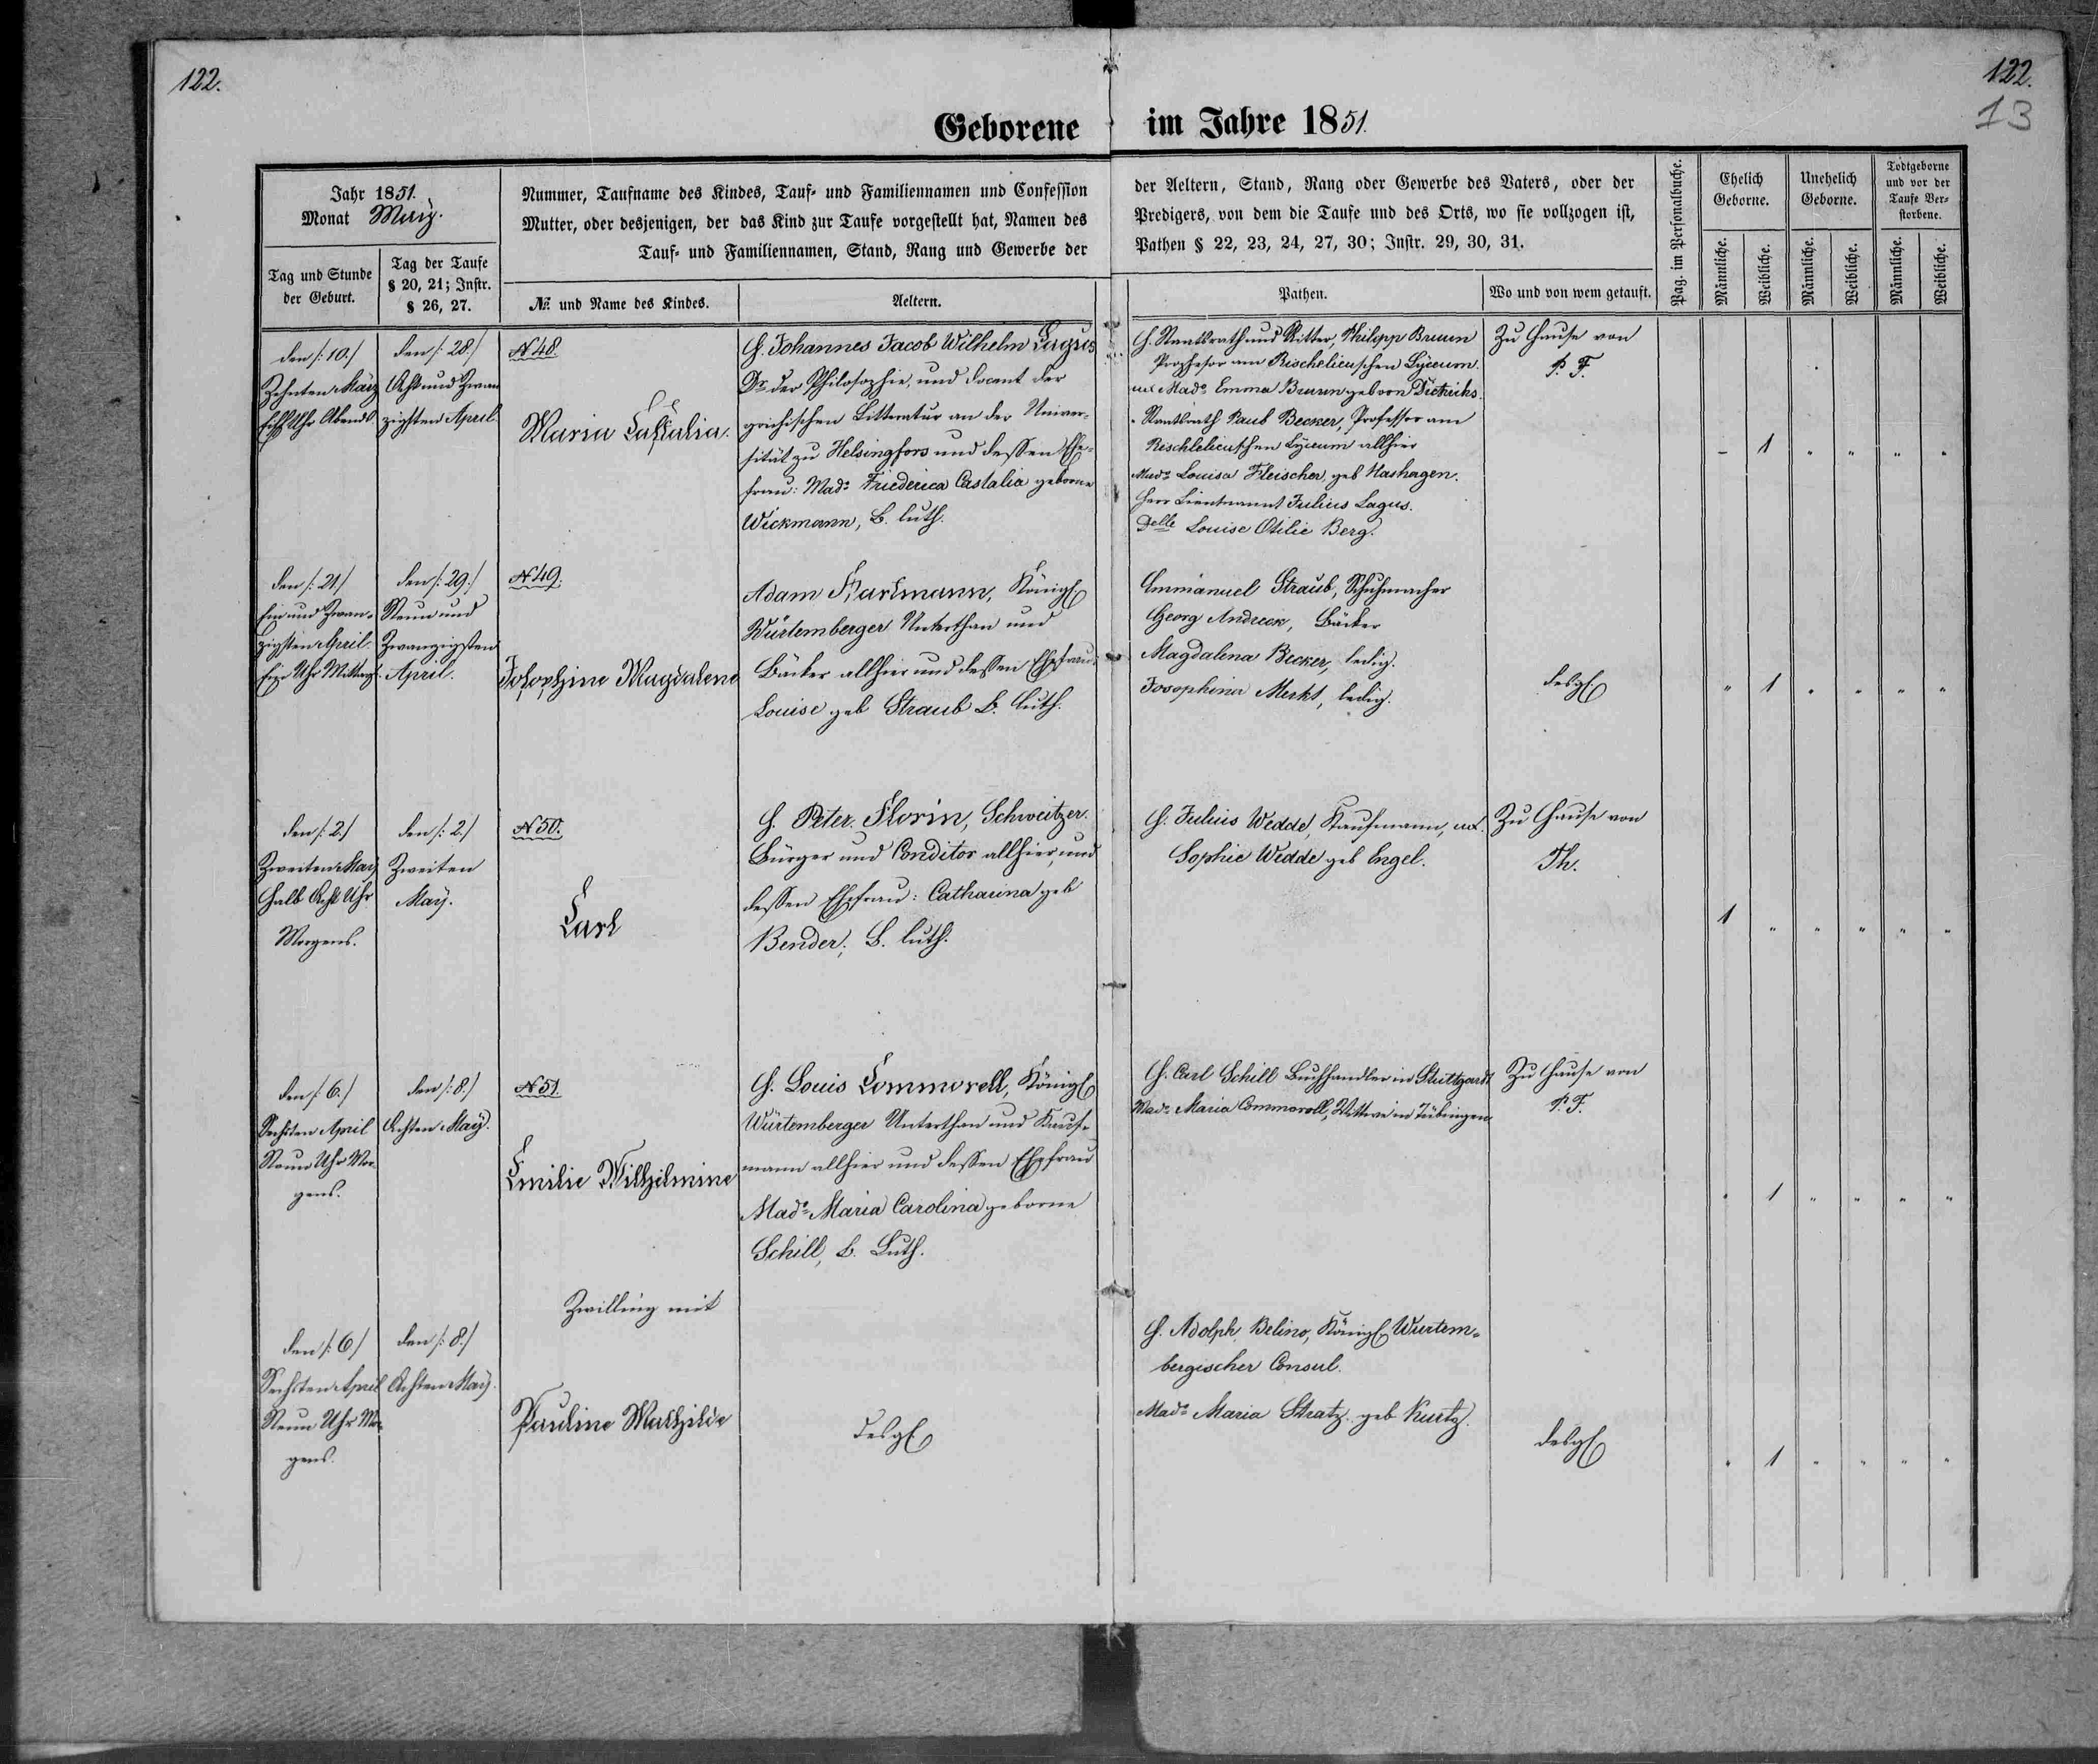 122.
122.
13
Geborene im Jahre 1851.
Jahr 1851.
Monat May.
Tag und Stunde
der Geburt.
Tag der Taufe
§ 20, 21; Instr.
§ 26, 27.
Nummer, Taufname des Kindes, Tauf- und Familiennamen und Confession
Mutter, oder desjenigen, der das Kind zur Taufe vorgestellt hat, Namen des
Tauf- und Familiennamen, Stand, Rang und Gewerbe der
№ und Name des Kindes.
Aeltern.
der Aeltern, Stand, Rang oder Gewerbe des Vaters, oder der
Predigers, von dem die Taufe und des Orts, wo sie vollzogen ist,
Pathen § 22, 23, 24, 27, 30; Instr. 29, 30, 31.
Pathen.
Wo und von wem getauft.
Pag. im Personalbuche.
Ehelich
Geborne.
Unehelich
Geborne.
Todtgeborne
und vor der
Taufe Ver-
storbene.
Männliche.
Weibliche.
Männliche.
Weibliche.
Männliche.
Weibliche.
den /: 10./
Zehnten März
Eilf Uhr Abends
den /: 28./
Acht und Zwan
zigsten April
N 48.
Maria Castalia.
H. Johannes Jacob Wilhelm Lagus
Dr. der Philosophie, und Docent der
grichischen Litteratur an der Univer-
sität zu Helsingfors und dessen Ehe-
frau: Mad. Friederica Castalia geborne
Wickmann, B. luth.
H. Staatsrath und Ritter, Philipp Bruun
Professor am Rischelieuschen Lyceum.
Mad. Emma Bruun geb von Dietrichs.
" Staatsrath Paul Becker, Professor am
Rischlelieuschen Lyceum allhier
Mad. Louisa Fleischer, geb Hashagen.
Herr Lieutnannt Julius Lagus.
Delle Louise Otilie Berg.
Zu Hause von
P. F.
– 1 " " " "
den /: 21./
Ein und Zwan-
zigsten April
Ein Uhr Mittags
den /: 29./
Neun und
Zwanzigsten
April.
N 49.
Josephine Magdalene
Adam Hartmann, Königl
Würtemberger Unterthan und
Bäcker allhier und dessen Ehefrau:
Louise geb Straub B. luth.
Emmanuel Straub, Schuhmacher
Georg Andreen, Bäcker
Magdalena Becker, ledig.
Josephina Merkt, ledig.
desgl
" 1 " " " "
den /: 2./
Zweiten May
Halb Acht Uhr
Morgens.
den /: 2./
Zweiten
May.
N 50.
Carl
H. Peter Florin, Schweitzer.
Bürger und Conditor allhier, und
dessen Ehefrau: Catharina geb
Bender, B. luth.
H. Julius Wedde, Kaufmann, ux.
Sophie Wedde geb Engel.
Zu Hause von
Th.
1 " " " " "
den /: 6./
Sechsten April
Neun Uhr Mor
gens.
den /: 8./
Achten May.
N 51.
Emilie Wilhelmine
H. Louis Commerell, Königl
Würtemberger Unterthan und Kauf-
mann allhier und dessen Ehefrau
Mad. Maria Carolina geborne
Schill, B. Luth.
H. Carl Schill Buchhandler in Stuttgardt
Mad. Maria Commorell, Wittwe in Tübingen
Zu Hause von
P. F.
" 1 " " " "
Zwilling mit
den /: 6./
Sechsten April
Neun Uhr Mor
gens.
den /: 8./
Achten May.
Pauline Mathilde
desgl
H. Adolph Belino, Königl Wurtem-
bergischer Consul.
Mad. Maria Stratz. geb Kurtz.
desgl
" 1 " " " "